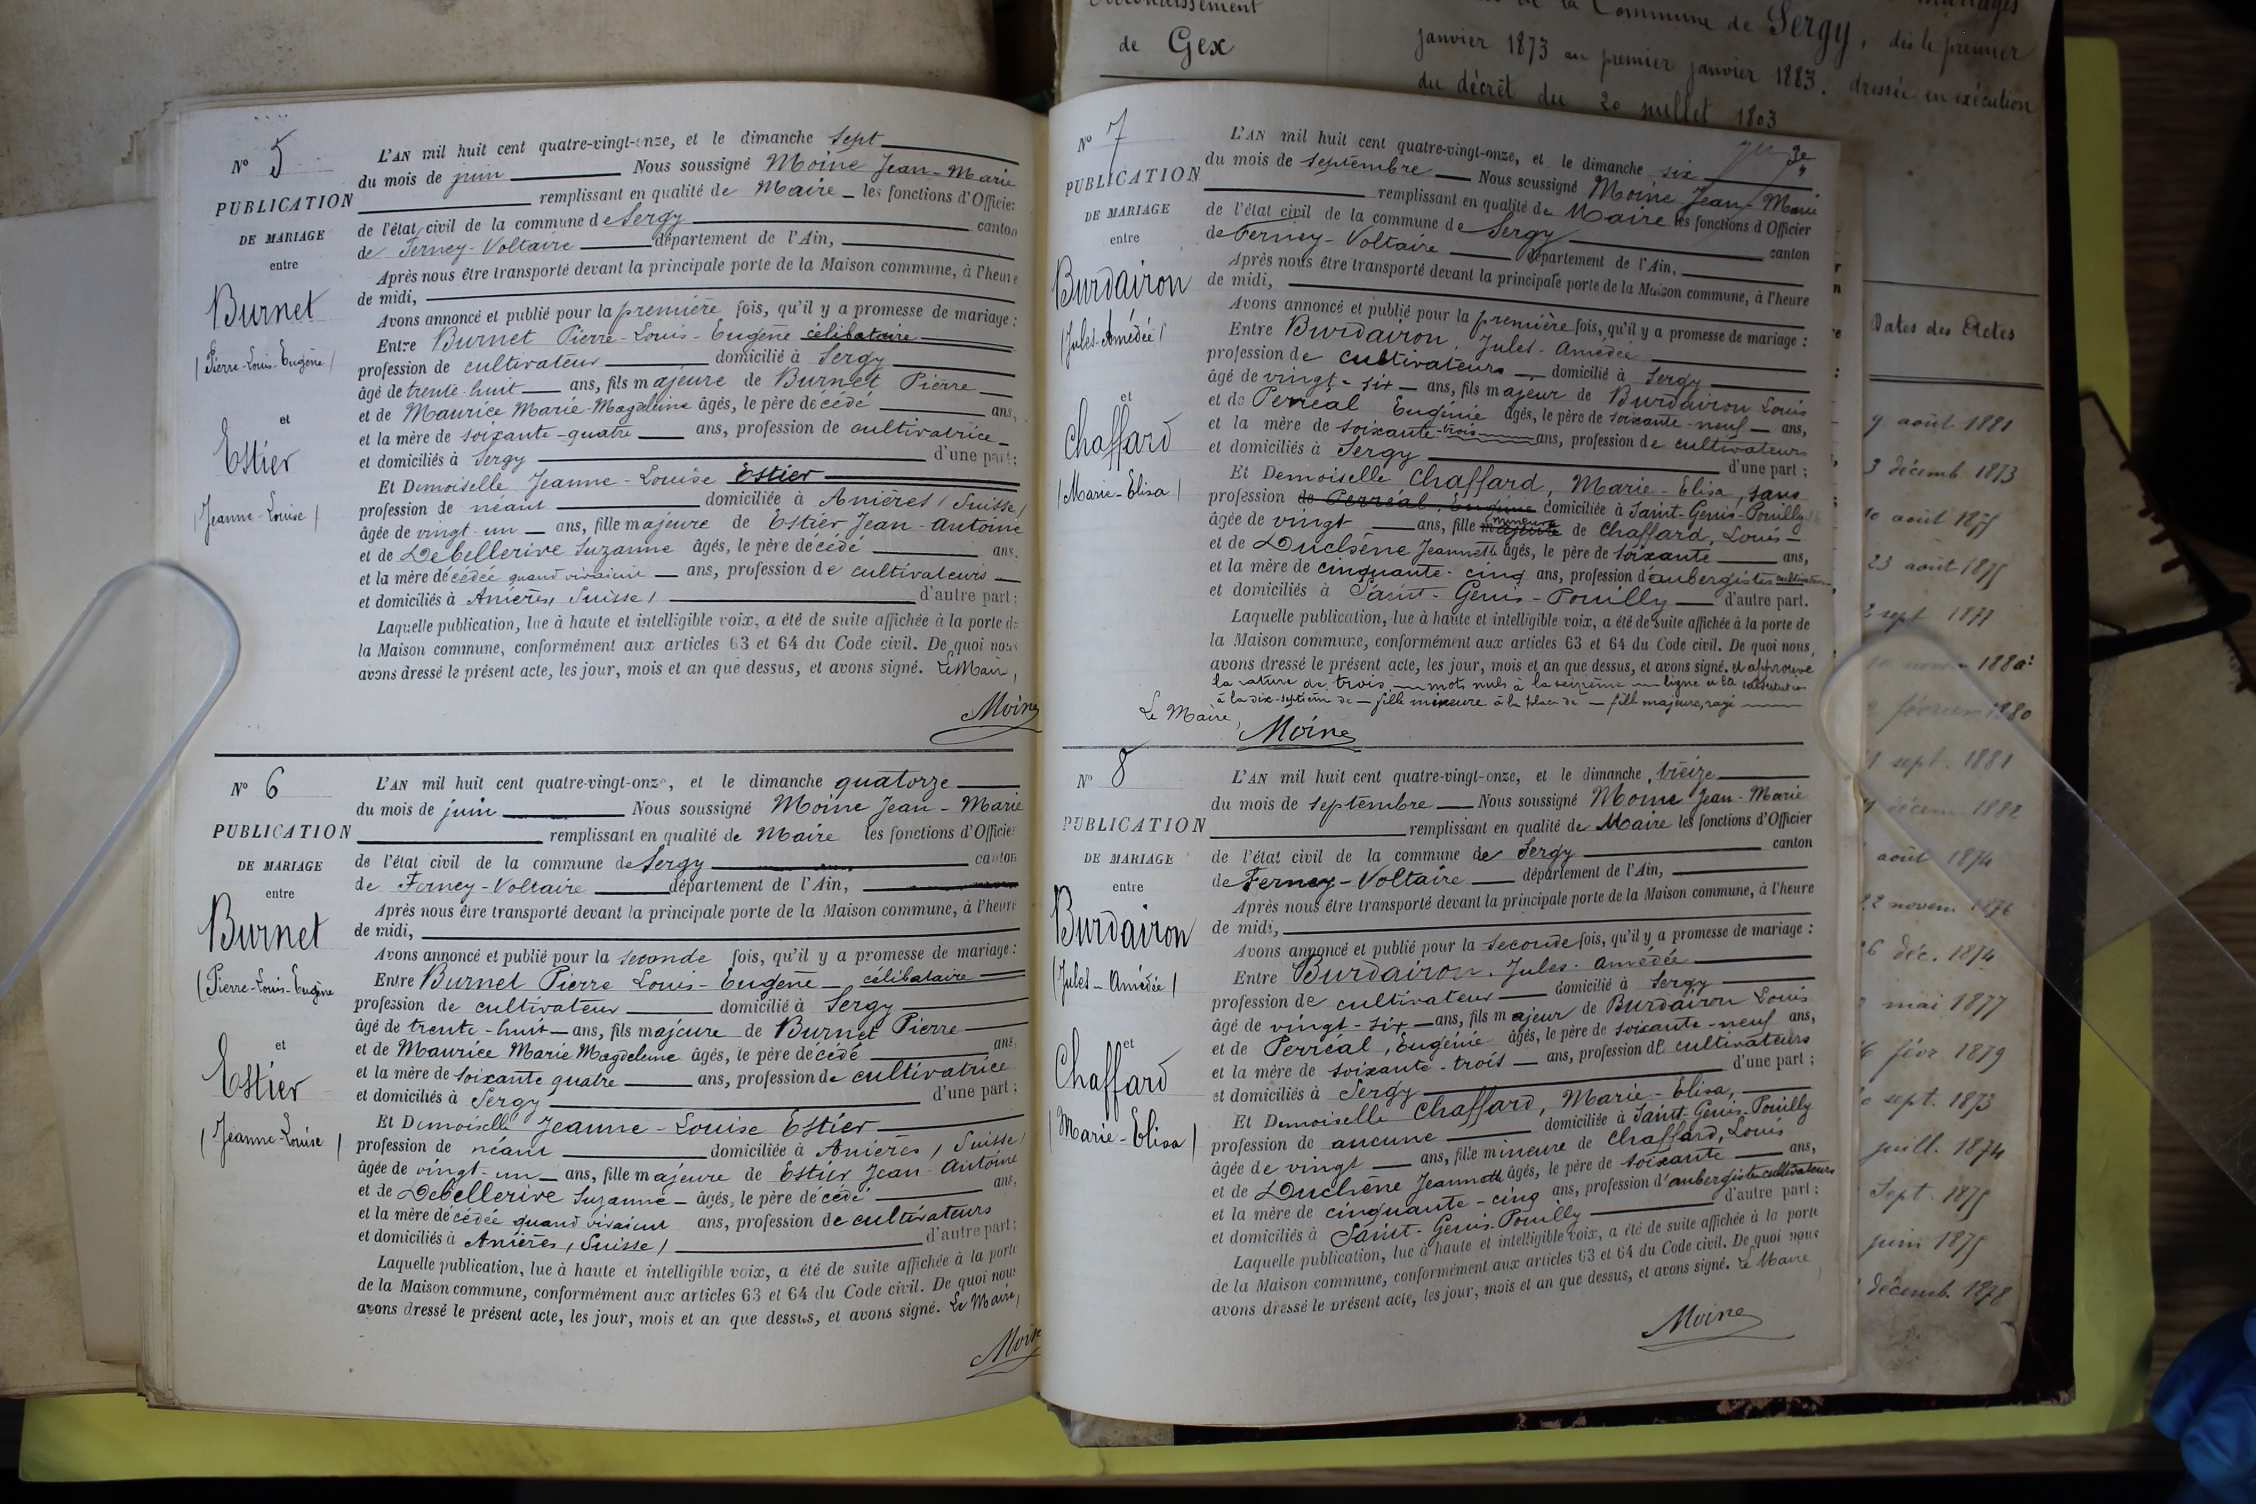 Nº 5
PUBLICATION
DE MARIAGE
entre
Burnet
(Pierre-Louis-Eugène)
et
Estier
(Jeanne-Louise)
L'AN mil huit cent quatre-vingt-onze, et le dimanche sept
du mois de juin Nous soussigné Moine Jean-Marie
remplissant en qualité de Maire les fonctions d'Officie
de l'état civil de la commune de Sergy canton
de Ferney-Voltaire département de l'Ain,
Après nous être transporté devant la principale porte de la Maison commune, à l'heure
de midi,
Avons annoncé et publié pour la première fois, qu'il y a promesse de mariage :
Entre Burnet Pierre-Louis-Eugène célibataire
profession de cultivateur domicilié à Sergy
âgé de trente-huit ans, fils majeure de Burnet Pierre
et de Maurice Marie-Magdeleine âgés, le père décédé ans,
et la mère de soixante-quatre ans, profession de cultivatrice
et domiciliés à Sergy d'une part ;
Et Demoiselle Jeanne-Louise Estier
profession de néant domiciliée à Anières (Suisse)
âgée de vingt-un ans, fille majeure de Estier Jean-Antoine
et de Debellerive Suzanne âgés, le père décédé ans.
et la mère décédée quand vivaient ans, profession de cultivateurs
et domiciliés à Anières (Suisse) d'autre part :
Laquelle publication, lue à haute et intelligible voix, a été de suite affichée à la porte de
la Maison commune, conformément aux articles 63 et 64 du Code civil. De quoi nous
avons dressé le présent acte, les jour, mois et an que dessus, et avons signé. Le Maire,
Moine
Nº 6
PUBLICATION
DE MARIAGE
entre
Burnet
(Pierre-Louis-Eugène
et
Estier
(Jeanne-Louise)
L'AN mil huit cent quatre-vingt-onze, et le dimanche quatorze
du mois de juin Nous soussigné Moine Jean-Marie
remplissant en qualité de Maire les fonctions d'Officie
de l'état civil de la commune de Sergy canton
de Ferney-Voltaire département de l'Ain,
Après nous être transporté devant la principale porte de la Maison commune, à l'heure
de midi,
Avons annoncé et publié pour la seconde fois, qu'il y a promesse de mariage :
Entre Burnet Pierre Louis-Eugène célibataire
profession de cultivateur domicilié à Sergy
âgé de trente-huit ans, fils majeure de Burnet Pierre
et de Maurice Marie Magdeleine âgés, le père décédé ans,
et la mère de soixante quatre ans, profession de cultivatrice
et domiciliés à Sergy d'une part ;
Et Demoiselle Jeanne-Louise Estier
profession de néant domiciliée à Anières (Suisse)
âgée de vingt-un ans, fille majeure de Estier Jean-Antoine
et de Debellerive Suzanne âgés, le père décédé ans,
et la mère décédée quand vivaient ans, profession de cultivateurs
et domiciliés à Anières (Suisse) d'autre part ;
Laquelle publication, lue à haute et intelligible voix, a été de suite affichée à la porte
de la Maison commune, conformément aux articles 63 et 64 du Code civil. De quoi nous
avons dressé le présent acte, les jour, mois et an que dessus, et avons signé. Le Maire,
Moine
Nº 7
PUBLICATION
DE MARIAGE
entre
Burdairon
(Jules-Amédée)
et
Chaffard
(Marie-Elisa)
L'AN mil huit cent quatre-vingt-onze, et le dimanche six
du mois de septembre Nous soussigné Moine Jean-Marie
remplissant en qualité de Maire les fonctions d'Officier
de l'état civil de la commune de Sergy canton
de Ferney-Voltaire département de l'Ain,
Après nous être transporté devant la principale porte de la Maison commune, à l'heure
de midi,
Avons annoncé et publié pour la première fois, qu'il y a promesse de mariage :
Entre Burdairon, Jules-Amédée
profession de cultivateurs domicilié à Sergy
âgé de vingt-six ans, fils majeur de Burdairon Louis
et de Perréal Eugénie âgés, le père de soixante-neuf ans,
et la mère de soixante-trois ans, profession de cultivateurs
et domiciliés à Sergy d'une part ;
Et Demoiselle Chaffard, Marie-Elisa, sans
profession de Perréal, Eugénie domiciliée à Saint-Genis-Pouilly
âgée de vingt ans, fille majeure mineure de Chaffard, Louis
et de Duchêne Jeannette âgés, le père de soixante ans,
et la mère de cinquante-cinq ans, profession d'aubergistes cultivateurs
et domiciliés à Saint-Genis-Pouilly d'autre part.
Laquelle publication, lue à haute et intelligible voix, a été de suite affichée à la porte de
la Maison commune, conformément aux articles 63 et 64 du Code civil. De quoi nous
avons dressé le présent acte, les jour, mois et an que dessus, et avons signé. et approuvé
la rature de trois mots nuls à la seizième ligne et la substitution
à la dix-septième de fille mineure à la place de fille majeure, rayé
Le Maire,
Moine
Nº 8
PUBLICATION
DE MARIAGE
entre
Burdairon
(Jules-Amédée)
et
Chaffard
(Marie-Elisa)
L'AN mil huit cent quatre-vingt-onze, et le dimanche, treize
du mois de septembre Nous soussigné Moine Jean-Marie
remplissant en qualité de Maire les fonctions d'Officier
de l'état civil de la commune de Sergy canton
de Ferney-Voltaire département de l'Ain,
Après nous être transporté devant la principale porte de la Maison commune, à l'heure
de midi,
Avons annoncé et publié pour la seconde fois, qu'il y a promesse de mariage :
Entre Burdairon, Jules-Amédée
profession de cultivateur domicilié à Sergy
âgé de vingt-six ans, fils majeur de Burdairon Louis
et de Perréal, Eugénie âgés, le père de soixante-neuf ans,
et la mère de soixante-trois ans, profession de cultivateurs
et domiciliés à Sergy d'une part ;
Et Demoiselle Chaffard, Marie-Elisa,
profession de aucune domiciliée à Saint-Genis-Pouilly
âgée de vingt ans, fille mineure de Chaffard, Louis
et de Duchêne Jeannette âgés, le père de soixante ans,
et la mère de cinquante-cinq ans, profession d'aubergistes cultivateurs
et domiciliés à Saint-Genis-Pouilly d'autre part ;
Laquelle publication, lue à haute et intelligible voix, a été de suite affichée à la porte
de la Maison commune, conformément aux articles 63 et 64 du Code civil. De quoi nous
avons dressé le présent acte, les jour, mois et an que dessus, et avons signé. Le Maire
Moine
de Gex
de la Commune de Sergy, dès le premier
janvier 1873 au premier janvier 1883. dressée en exécution
du décrêt du 20 juillet 1803
Dates des Actes
9 août 1881
3 décemb 1873
10 août 1875
23 août 1875
2 sept 1877
1880
février 1880
sept. 1881
décem 1882
août 1874
22 novem 1876
26 déc. 1874
mai 1877
6 févr 1879
sept. 1873
juill. 1874
Sept. 1875
juin 1875
décemb. 1878